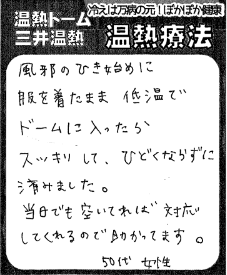 冷えは万病の元！ぽかぽか健康
温熱ドーム
三井温熱
温熱療法
風邪のひき始めに
服を着たまま 低温で
ドームに入ったら
スッキリして、ひどくならずに
済みました。
当日でも空いてれば対応
してくれるので助かってます。
50代 女性